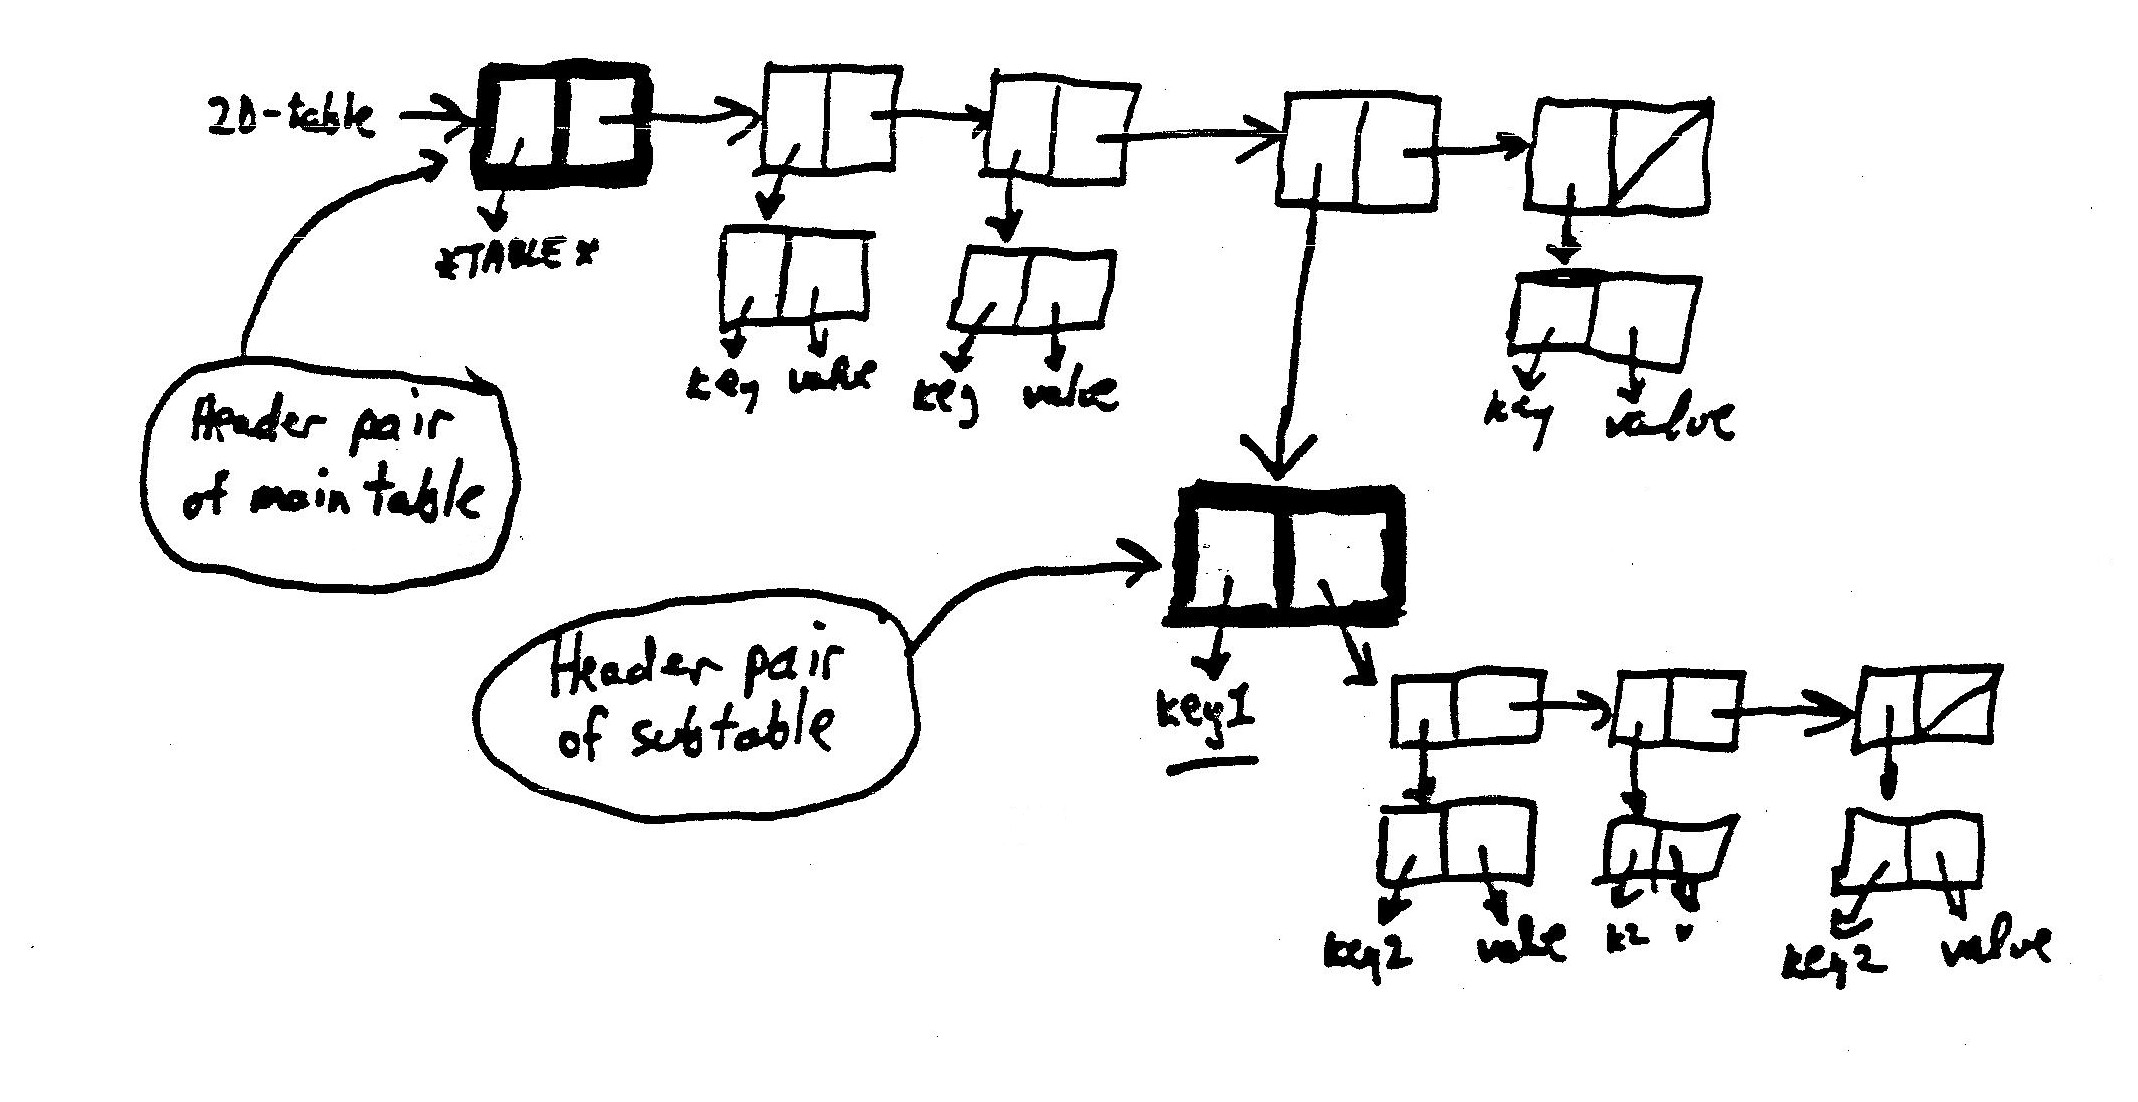 2D-table
*TABLE*
key value
key value
key value
Header pair
of main table
Header pair
of subtable
key1
key2 value
k2 v
key2 value